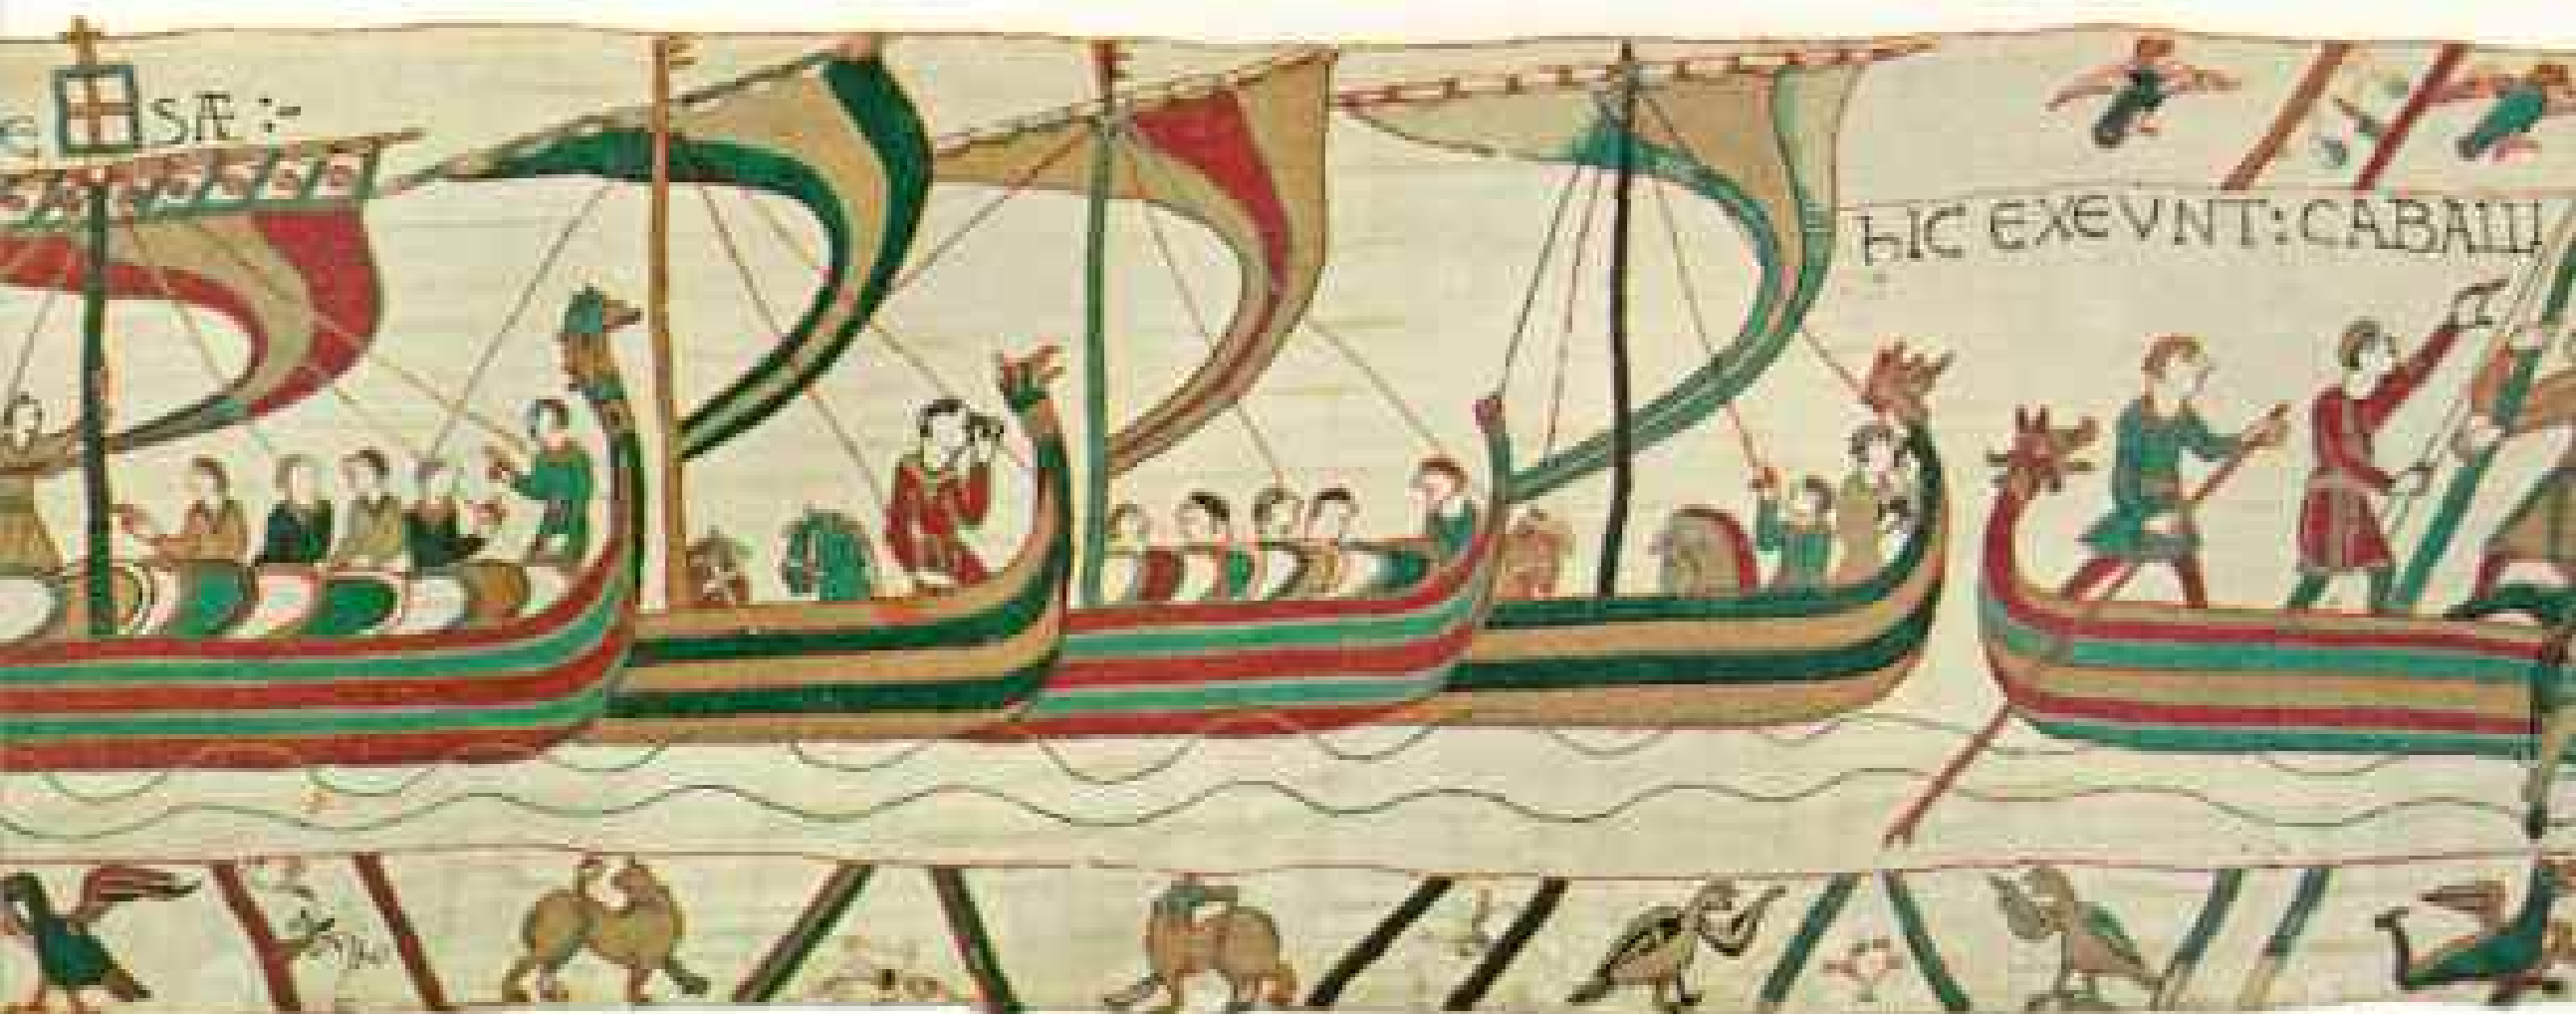 E SÆ :-
hIC EXEVNT : CABALLI